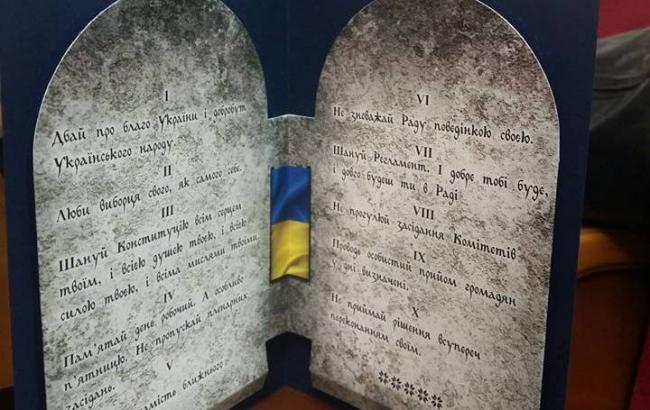 I
Дбай про благо України і добробут
Українського народу.
II
Люби виборця свого, як самого себе.
III
Шануй Конституцію всім серцем
твоїм, і всією душею твоєю, і всією
силою твоєю, і всіма мислями твоїми.
IV
Пам'ятай день робочий. А особливо
п'ятницю. Не пропускай пленарних
засідань.
V
замість ближнього
VI
Не зневажай Раду поведінкою своєю.
VII
Шануй Регламент. І добре тобі буде,
і довго будеш ти в Раді
VIII
Не прогулюй засідання Комітетів
IX
Проводь особистий прийом громадян
у дні визначені.
X
Не приймай рішення всупереч
переконанням своїм.